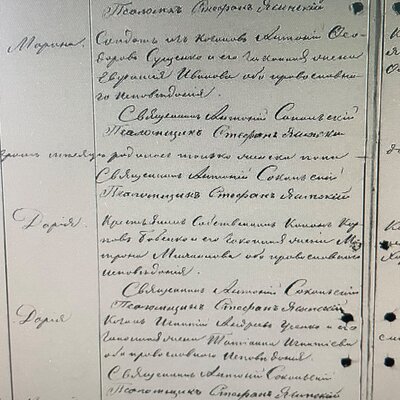 Псаломщикъ Стефанъ Ялинскій
Марина.
Солдатъ изъ Козаковъ Антоній Ѳео-
доровъ Сущенко и его законная жена
Евфросинія Иванова оба православна-
го исповѣданія.
Священникъ Антоній Сокольскій
Псаломщикъ Стефанъ Ялински
родилось только женска пола
Священникъ Антоній Сокольскій
Псаломщикъ Стефанъ Ялинский
Дарія.
Крестьянинъ Собственникъ
и его законная жена Мат-
рона оба православнаго
исповѣданія.
Священникъ Антоній Сокольскій
Псаломщикъ Стефанъ Ялинскій
Дарія
Козакъ Игнатій Андреевъ и его
законная жена Татіана Игнатіева
оба православнаго исповѣданія.
Священникъ Антоній Сокольскій
Псаломщикъ Стефанъ Ялинский